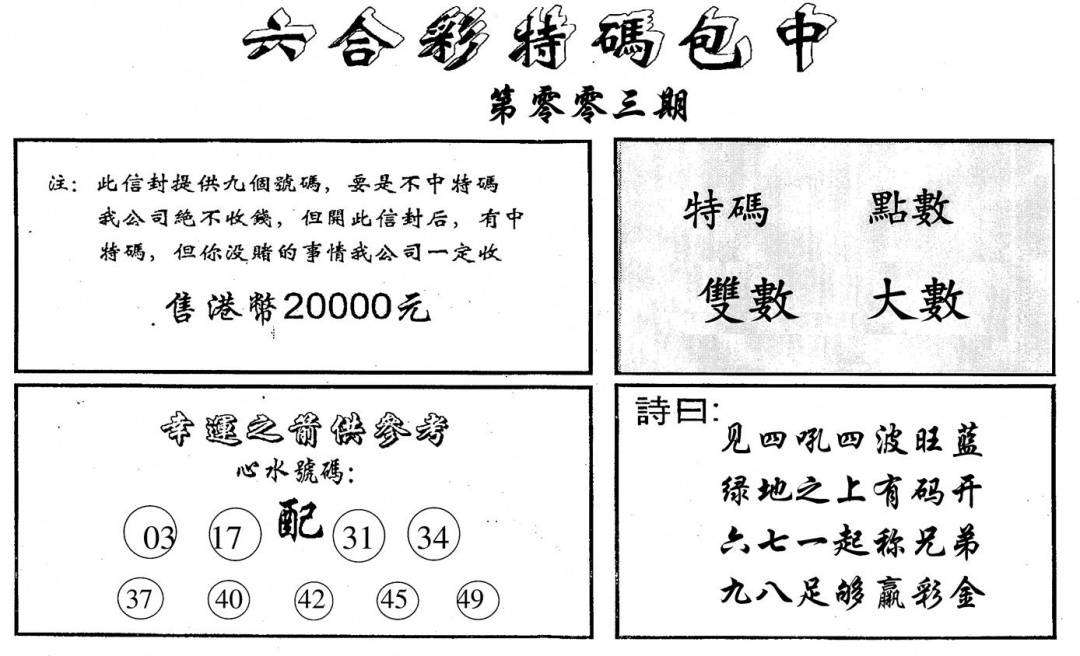 六合彩特碼包中
第零零三期
注：此信封提供九個號碼，要是不中特碼
我公司絕不收錢，但開此信封后，有中
特碼，但你没賭的事情我公司一定收
售港幣20000元
特碼 點數
雙數 大數
幸運之箭供參考
心水號碼：
03 17 配 31 34
37 40 42 45 49
詩曰：
见四吼四波旺蓝
绿地之上有码开
六七一起称兄弟
九八足够赢彩金